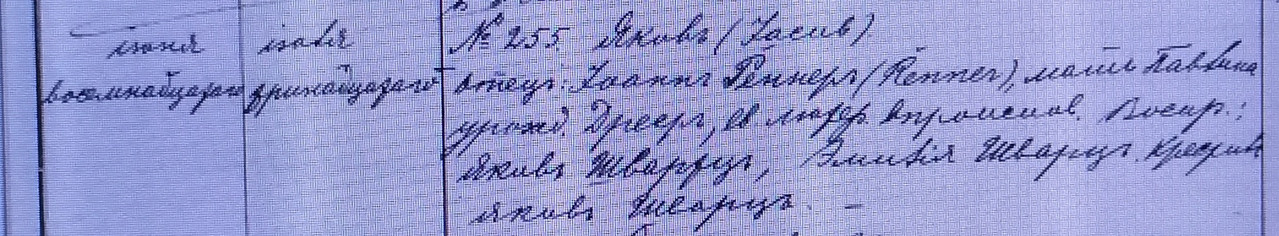 іюня іюля № 255. Яковъ (Jacob)
восемнадцатаго тринадцатаго отецъ: Іоаннъ Реннеръ (Renner), мать Павлина
урожд. Дрееръ, ев. лютер. вѣроиспов. Воспр.:
Яковъ Шварцъ, Эмилія Шварцъ. Крестилъ
Яковъ Шварцъ. —